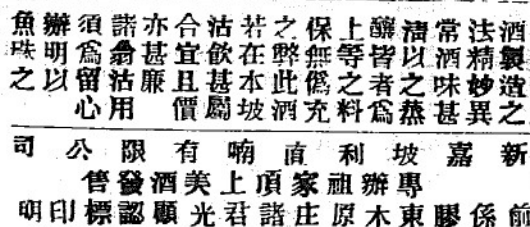 酒製造之
法精妙異
常酒味甚
清以之蒸
釀皆者爲
上等之料
保無僞充
之弊此酒
若在本坡
沽飲甚屬
合宜且價
亦甚廉
諸翁沽用
須爲留心
辦明以
魚珠之
新嘉坡利直喃有限公司
專辦祖家頂上美酒發售
前係膠東木原庄諸君光顧認標印明